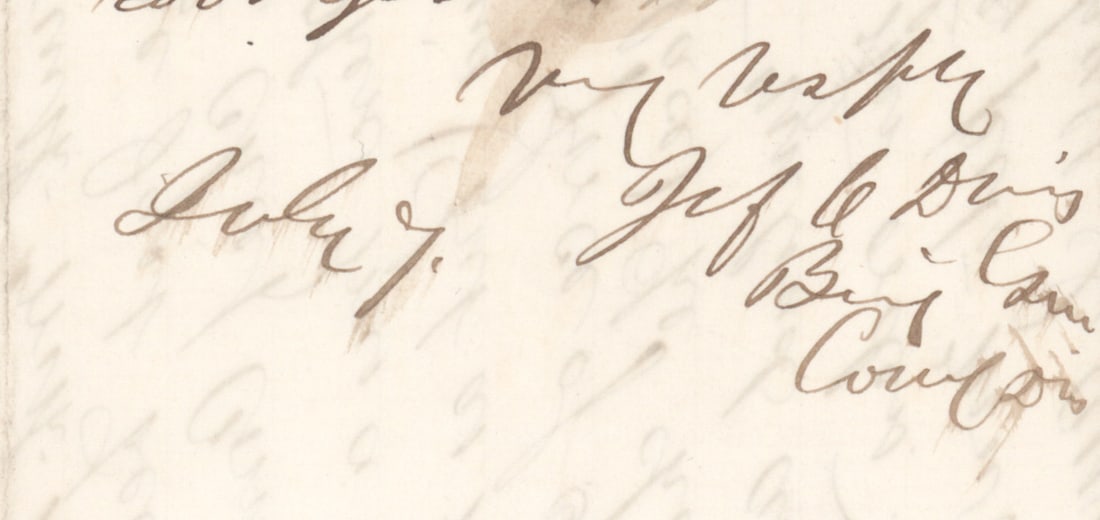 Very Respy
July 7. Jef C Davis
Brig Genl
Comdg Div